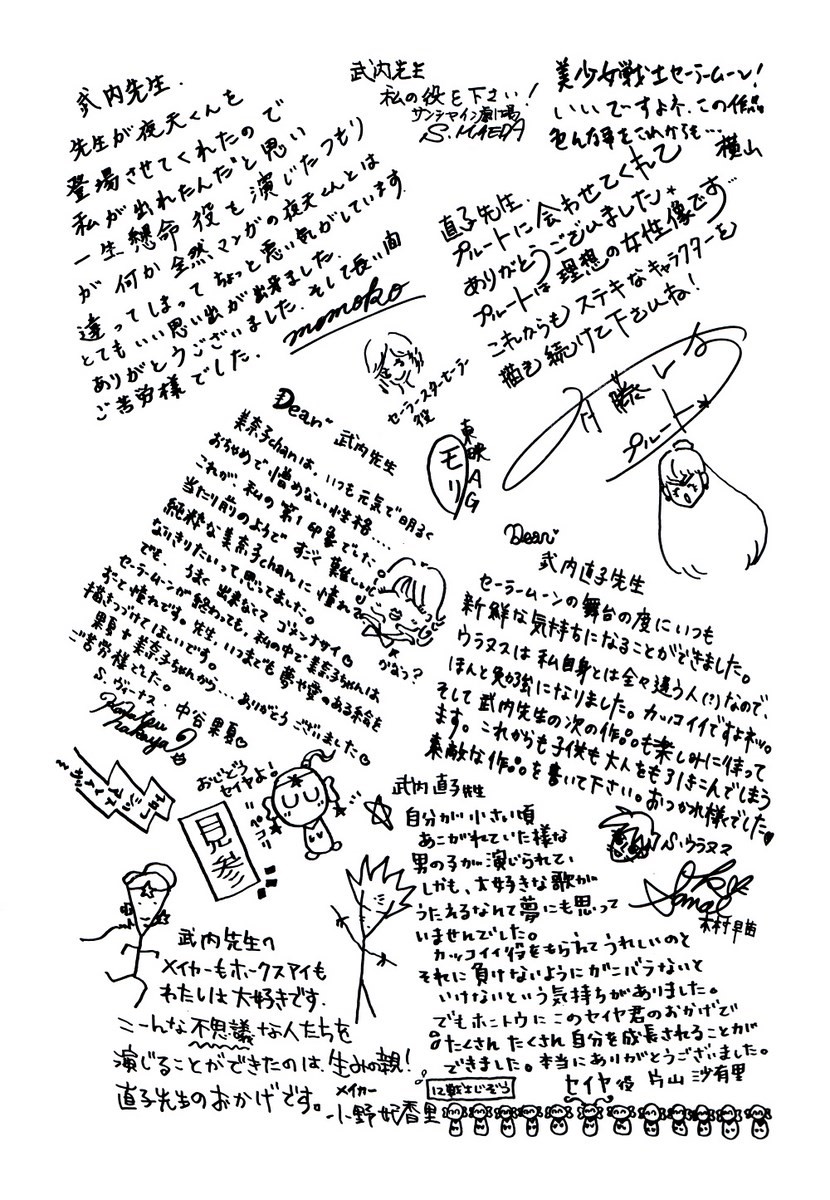 武内先生.
先生が夜天くんを
登場させてくれたので
私が出れたんだと思い
一生懸命 役も演じたつもり
が 何か全然マンガの夜天くんとは
違ってしまって ちょっと悪い気がしています.
とてもいい思い出が出来ました.
ありがとうございました. そして長い間
ご苦労様でした.
momoko
武内先生
私の役を下さい!
サンシャイン劇場
S. MAEDA
美少女戦士セーラームーン!
いいですよネ. この作品
色んな事をこれからも…
横山
直子先生.
プルートに会わせてくれて
ありがとうございました.
プルートは理想の女性像です…
これからも ステキなキャラクターを
描き続けて下さいね!
プルート
セーラースターセーラー
役
東映AG
モリ
Dear
武内先生
美奈子chanは、いつも元気で明るく
おちゃめで憎めない性格....
これが、私の第1印象でした。
当たり前のようで すごく難しい
純粋な美奈子chanに憧れて
なりきりたいって思ってました。
でも、うまく出来なくてゴメンナサイ
セーラームーンが終わっても、私の中で美奈子ちゃんは
ずっと憧れです。先生、いつまでも夢や愛のある絵を
描きつづけてほしいです。
果夏+美奈子ちゃんから... ありがとうございました
ご苦労様でした。
S.ヴィーナス. 中谷果夏
かなつ?
Dear
武内直子先生
セーラームーンの舞台の度にいつも
新鮮な気持ちになることができました。
ウラヌスは私自身とは全々違う人(?)なので、
ほんと勉強になりました。カッコイイですよネッ。
そして武内先生の次の作品も楽しみに待って
ます。これからも子供も大人をも引きこんでしまう
素敵な作品を書いて下さい。おつかれ様でした
S.ウラヌス
木村早苗
おじぞう
セイヤよ!
ペコリ
見参
武内直子先生
自分が小さい頃
あこがれていた様な
男の子が演じられて、
しかも、大好きな歌が
うたえるなんて夢にも思って
いませんでした。
カッコイイ役をもらえてうれしいのと
それに負けないようにガンバラないと
いけないという気持ちがありました。
でもホントウに このセイヤ君のおかげで
たくさん たくさん 自分を成長されることが
できました。本当にありがとうございました。
セイヤ役 片山沙有里
12戦士じぞう
武内先生へ
メイカーもホークスアイも
わたしは大好きです.
こーんな不思議な人たちを
演じることができたのは、生みの親!
直子先生のおかげです。
メイカー
小野妃香里